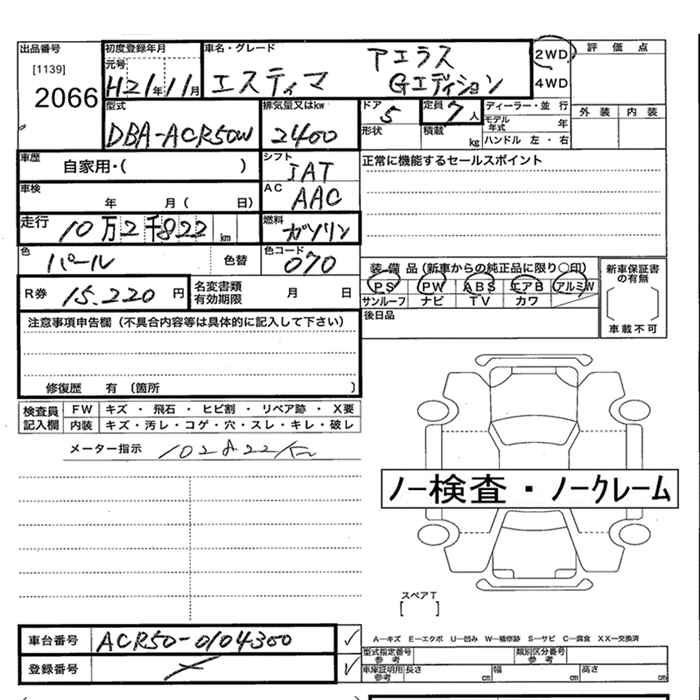 出品番号 初度登録年月 車名・グレード 2WD 評価点
[1139] 元号 アエラス
2066 H21年11月 エスティマ Gエディション 4WD
型式 排気量又はkw ドア 5 定員 7人 ディーラー・並行 外装 内装
DBA-ACR50W 2400 形状 積載 kg モデル年式 年
ハンドル 左・右
車歴 自家用・( ) シフト IAT 正常に機能するセールスポイント
車検 年 月( 日) AC AAC
走行 10万2千822km 燃料 ガソリン
色 パール 色替 色コード 070
装備品(新車からの純正品に限り○印) 新車保証書の有無
R券 15.220円 名変書類有効期限 月 日 PS PW ABS エアB アルミW
サンルーフ ナビ TV カワ
注意事項申告欄(不具合内容等は具体的に記入して下さい) 後日品 車載不可
修復歴 有(箇所 )
検査員記入欄 FW キズ・飛石・ヒビ割・リペア跡・X要
内装 キズ・汚レ・コゲ・穴・スレ・キレ・破レ
メーター指示 102822km
ノー検査・ノークレーム
スペアT
[ ]
車台番号 ACR50-0104300 ✓ A―キズ E―エクボ U―凹み W―補修跡 S―サビ C―腐食 XX―交換済
型式指定番号参考 類別区分番号参考
登録番号 ✓ 車庫証明用参考 長さ cm 幅 cm 高さ cm